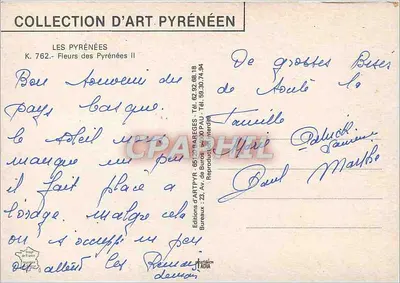 COLLECTION D'ART PYRÉNÉEN
LES PYRÉNÉES
K. 762.- Fleurs des Pyrénées II
Bon souvenir du
pays basque.
le soleil nous
manque un peu
il fait place a
l'orage. malgre cela
on s'occupe un peu
on attend les
demain
Editions d'ARTPYR - 65 BAREGES - Tél. 62.92.68.18
Bureaux : 23, Av. de Buros 64000 PAU - Tél. 59.30.74.94
Reproduction interdite
CPAPHIL
De grosses Bises
de toute la
famille
Patrick
Paul Marthe